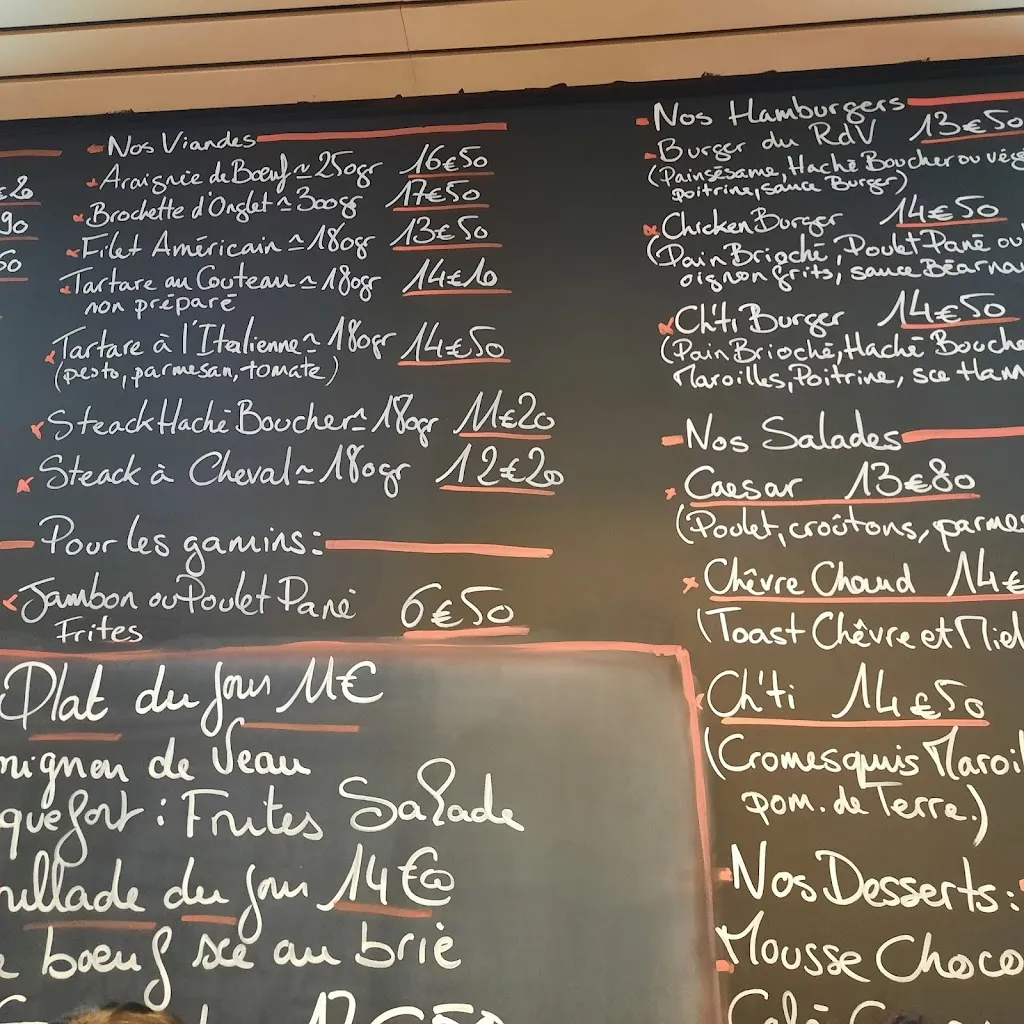 Nos Viandes
Araignée de Boeuf ~ 250gr 16€50
Brochette d'Onglet ~ 300gr 17€50
Filet Américain ~ 180gr 13€50
Tartare au Couteau ~ 180gr 14€10
non préparé
Tartare à l'Italienne ~ 180gr 14€50
(pesto, parmesan, tomate)
Steack Haché Boucher ~ 180gr 11€20
Steack à Cheval ~ 180gr 12€20
Pour les gamins :
Jambon ou Poulet Pané 6€50
Frites
Plat du jour 11€
mignon de Veau
quefort : Frites Salade
du jour 14€
boeuf sce au brie
Nos Hamburgers
Burger du RdV 13€50
(Pain sésame, Haché Boucher ou vég
poitrine, sauce Burger)
Chicken Burger 14€50
(Pain Brioché, Poulet Pané ou
oignon frits, sauce Béarna
Ch'ti Burger 14€50
(Pain Brioché, Haché Bouche
Maroilles, Poitrine, sce Ham
Nos Salades
Caesar 13€80
(Poulet, croûtons, parmes
Chêvre Chaud 14€
(Toast Chêvre et Miel
Ch'ti 14€50
(Cromesquis Maroil
pom. de Terre.)
Nos Desserts :
Mousse Choco